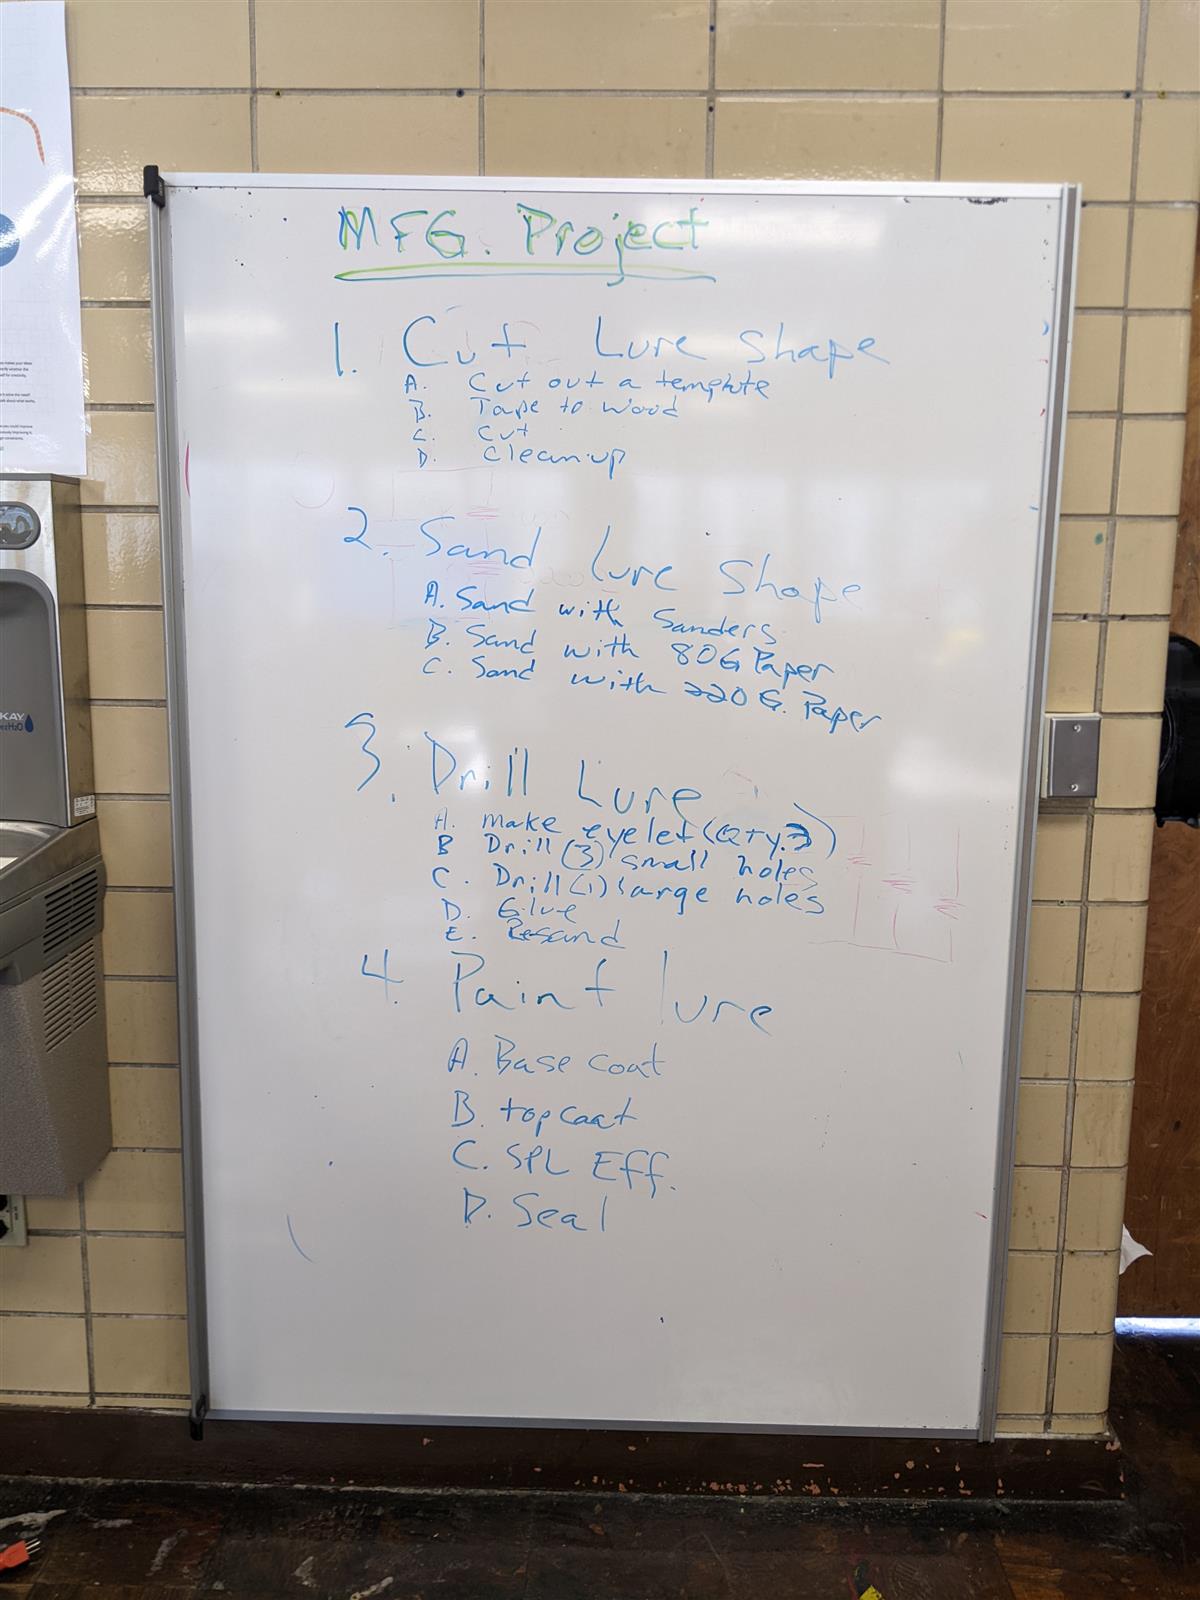 MFG. Project
1. Cut Lure shape
A. Cut out a template
B. Tape to wood
C. Cut
D. Clean-up
2. Sand lure shape
A. Sand with Sanders
B. Sand with 80G Paper
C. Sand with 220 G. Paper
3. Drill Lure
A. Make eyelet (Qty. 3)
B Drill (3) small holes
C. Drill (1) large holes
D. Glue
E. Resand
4. Paint lure
A. Base coat
B. topcoat
C. SPL Eff.
D. Seal
KAY